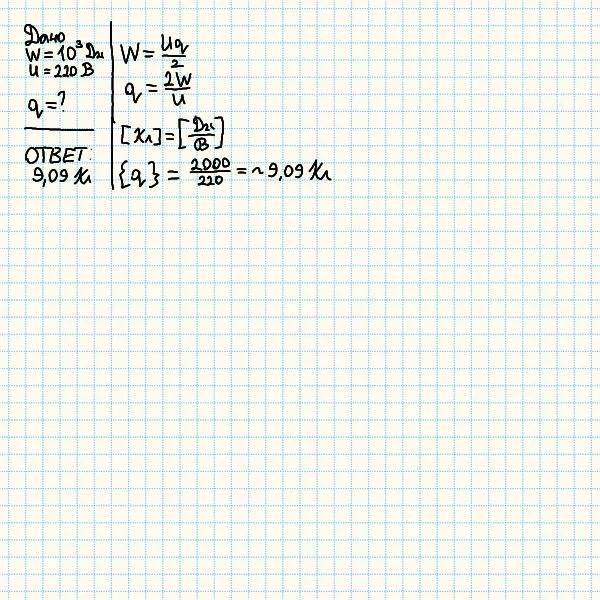 Дано
W = 10³ Дж
U = 220 В
q = ?
ОТВЕТ:
9,09 Кл
W = Uq/2
q = 2W/U
[Кл] = [Дж/В]
{q} = 2000/220 = ~ 9,09 Кл